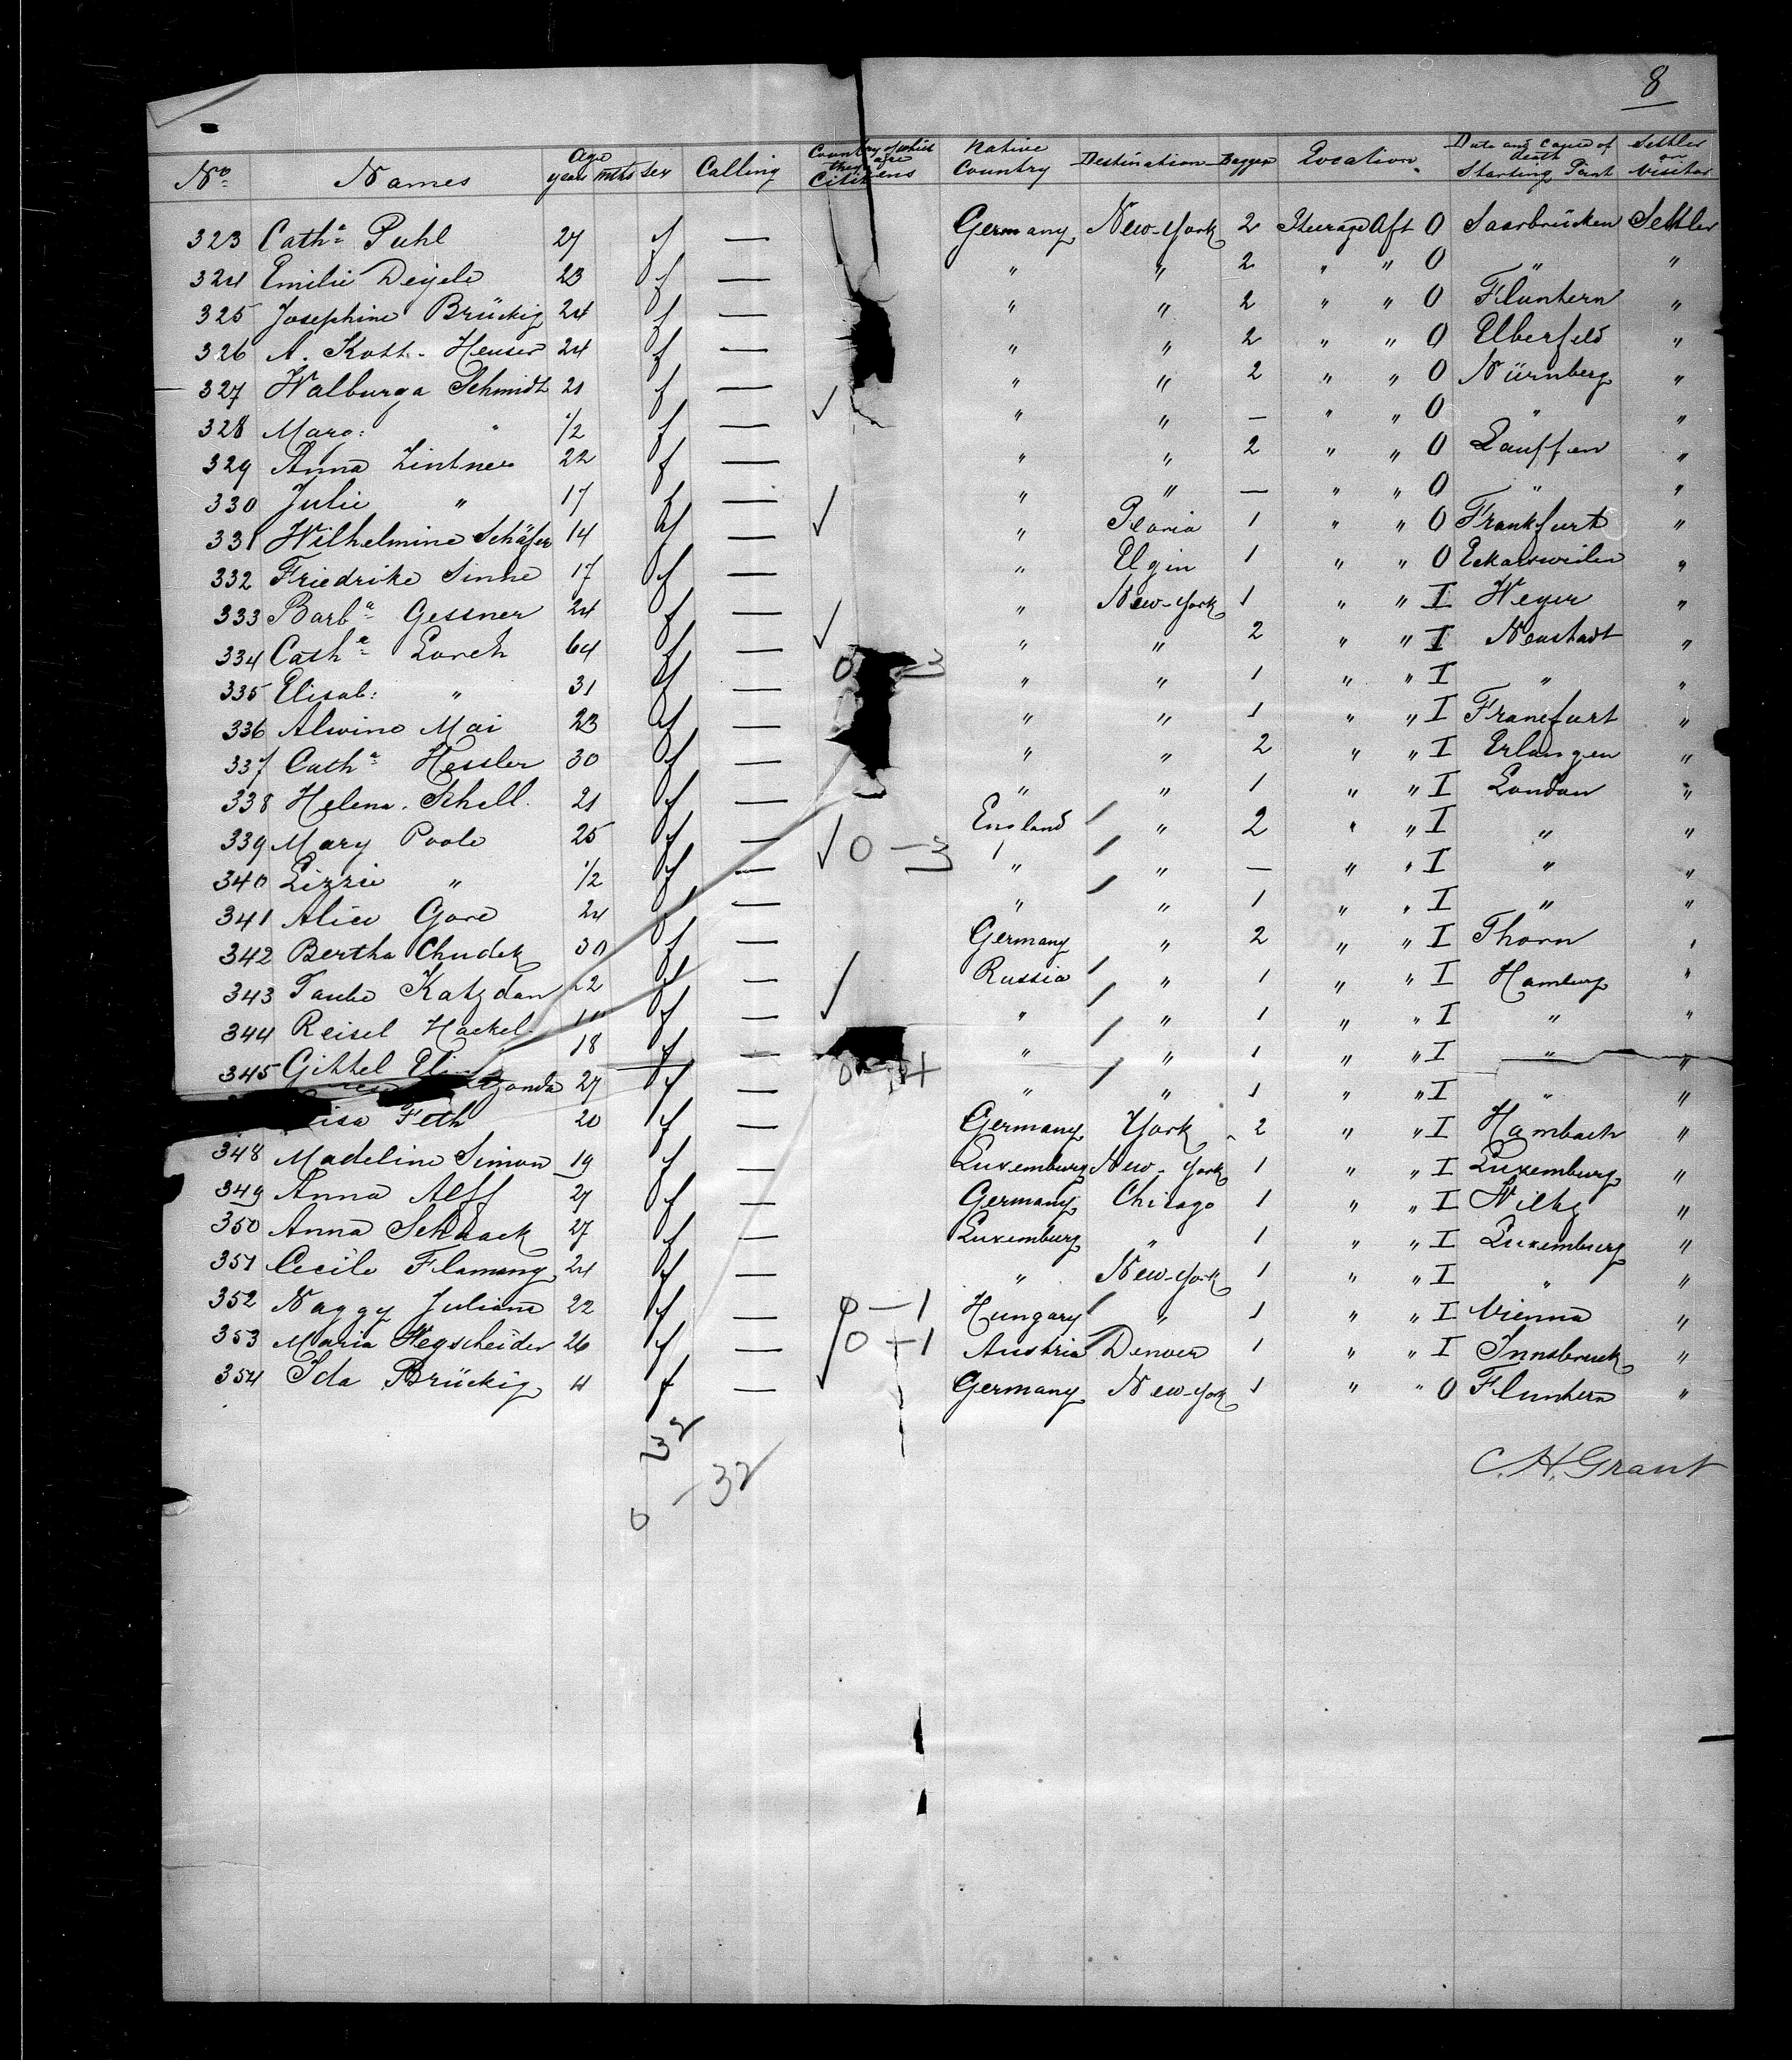 8
No. Names Age years mths sex Calling Country of which they are Citizens Native Country Destination Baggage Location Date and cause of death Starting Point Settler or Visitor
323 Cath.a Puhl 27 f — Germany New-York 2 Steerage Aft O Saarbrücken Settler
324 Emilie Deyele 23 f — " " 2 " " O " "
325 Josephine Brückig 24 f — " " 2 " " O Fluntern "
326 A. Kath. Heuser 24 f — " " 2 " " O Elberfeld "
327 Walburga Schmidt 21 f — " " 2 " " O Nürnberg "
328 Marg: " 1/2 f — ✓ " " — " " O " "
329 Anna Lintner 22 f — " " 2 " " O Lauffen "
330 Julie " 17 f — " " — " " O " "
331 Wilhelmine Schäfer 14 f — ✓ " Peoria 1 " " O Frankfurt "
332 Friedrike Sinne 17 f — " Elgin 1 " " O Eckarsweiler "
333 Barb.a Gessner 24 f — " New-York 1 " " I Weyer "
334 Cath.a Lorch 64 f — ✓ " " 2 " " I Neustadt "
335 Elisab: " 31 f — 0 — 3 " " 1 " " I " "
336 Alwine Mai 23 f — " " 1 " " I Francfurt "
337 Cath.a Hessler 30 f — " " 2 " " I Erlangen "
338 Helena Schell 21 f — " " 1 " " I London "
339 Mary Poole 25 f — England " 2 " " I " "
340 Lizzie " 1/2 f — ✓ 0 — 3 " " — " " I " "
341 Alice Gore 24 f — " " 1 " " I " "
342 Bertha Chudek 30 f — Germany " 2 " " I Thorn "
343 Taube Katzdan 22 f — Russia " 1 " " I Hamburg "
344 Reisel Hackel f — ✓ " " 1 " " I " "
345 Gittel 18 f — " " 1 " " I " "
27 f — 0 — 4 " " 1 " " I " "
isa Feth 20 f — Germany York 2 " " I Hambach "
348 Madeline Simon 19 f — Luxemburg New-York 1 " " I Luxemburg "
349 Anna Alff 27 f — Germany Chicago 1 " " I Wiltz "
350 Anna Schaack 27 f — Luxemburg " 1 " " I Luxemburg "
351 Cecile Flamang 24 f — " New-York 1 " " I " "
352 Naggy Juliana 22 f — 0 — 1 Hungary " 1 " " I Vienna "
353 Maria Wegscheider 26 f — 0 — 1 Austria Denver 1 " " I Innsbruck "
354 Ida Brückig 11 f — ✓ Germany New-York 1 " " O Fluntern "
32
0 — 32
C. H. Grant